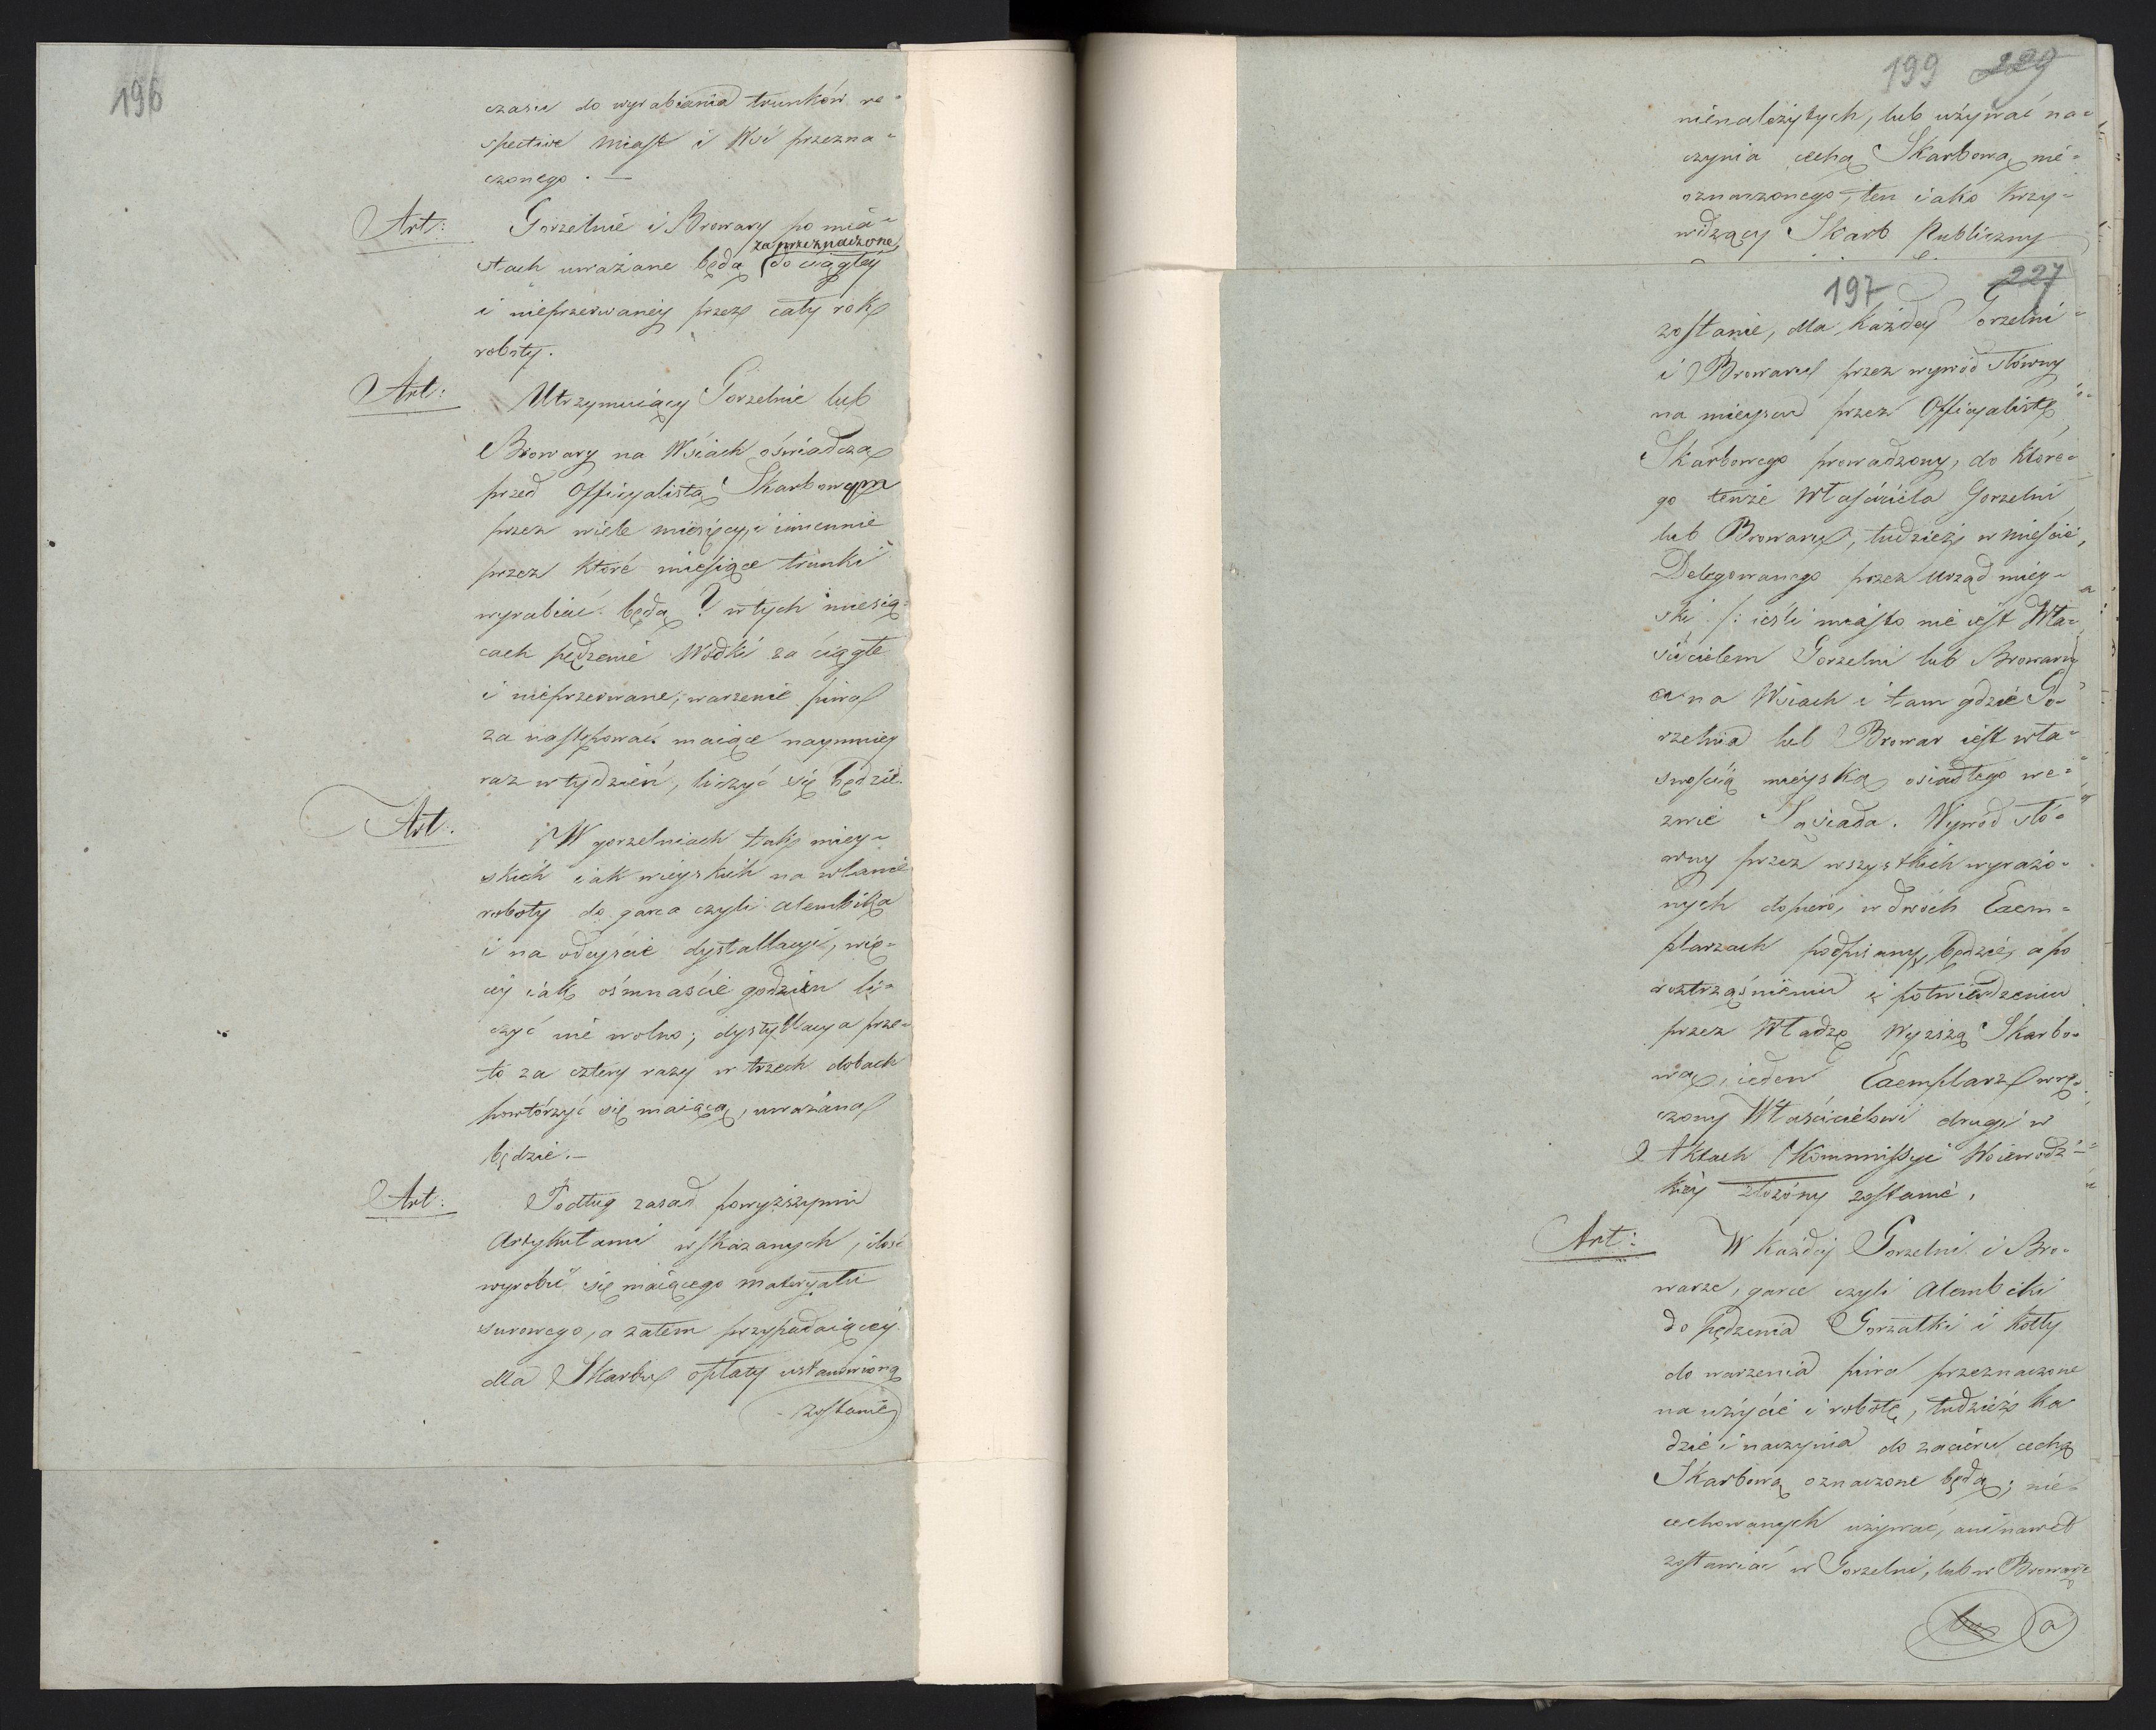 196
czasu do wyrabiania trunków re=
spective Miast i Wsi przezna=
czonego. —
Art: Gorzelnie i Browary po mia=
za przeznaczone
stach uważane będą do ciągłey
i nieprzerwaney przez cały rok
roboty.
Art: Utrzymuiący Gorzelnie lub
Browary na Wsiach oświadczą
przed Officyalistą Skarbowym
przez wiele miesięcy, i imiennie
przez które miesiące trunki
wyrabiać będą? w tych miesią=
cach pędzenie Wódki za ciągłe
i nieprzerwane; warzenie piwa
za następować maiące naymniey
raz w tydzień, liczyć się będzie.
Art. W gorzelniach tak miey=
skich iak wieyskich na wlanie
roboty do garca czyli alembika
i na odeyście dystallacyi, wię=
cey iak ośmnaście godzin li=
czyć nie wolno; dystyllacya prze=
to za cztery razy w trzech dobach
powtórzyć się maiącą, uważana
będzie. —
Art: Podług zasad powyższymi
Artykułami wskazanych, ilość
wyrobić się maiącego materyału
surowego, a zatem przypadaiącey
dla Skarbu opłaty ustanowioną
zostanie
199 229
nienależytych, lub używać na=
czynia cechą Skarbową nie=
oznaczonego, ten iako krzy=
wdzący Skarb Publiczny
197 227
zostanie, dla każdey Gorzelni
i Browaru przez wywód słówny
na mieyscu przez Officyalistę
Skarbowego prowadzony, do które=
go tenże Właściciela Gorzelni
lub Browaru, tudzież w mieście,
Delegowanego przez Urząd miey=
ski /: ieśli miasto nie iest Wła=
ścicielem Gorzelni lub Browaru
a na Wsiach i tam gdzie Go=
rzelnia lub Browar iest wła=
snością mieyską osiadłego we=
zwie Sąsiada. Wywód słó=
wny przez wszystkich wyrażo=
nych dopiero, w dwóch Exem=
plarzach podpisany będzie, a po
roztrząśnieniu i potwierdzeniu
przez Władzę Wyższą Skarbo=
wą, ieden Exemplarz wrę=
czony Właścicielowi drugi w
Aktach Kommissyi Woiewódz=
kiey złożony zostanie.
Art: W każdey Gorzelni i Bro=
warze, garce czyli Alembiki
do pędzenia Gorzałki i kotły
do warzenia piwa przeznaczone
na użycie i robotę, tudzież ka
dzie i naczynia do zacieru cechą
Skarbową oznaczone będą; nie=
cechowanych używać, ani nawet
zostawiać w Gorzelni, lub w Browarze
a